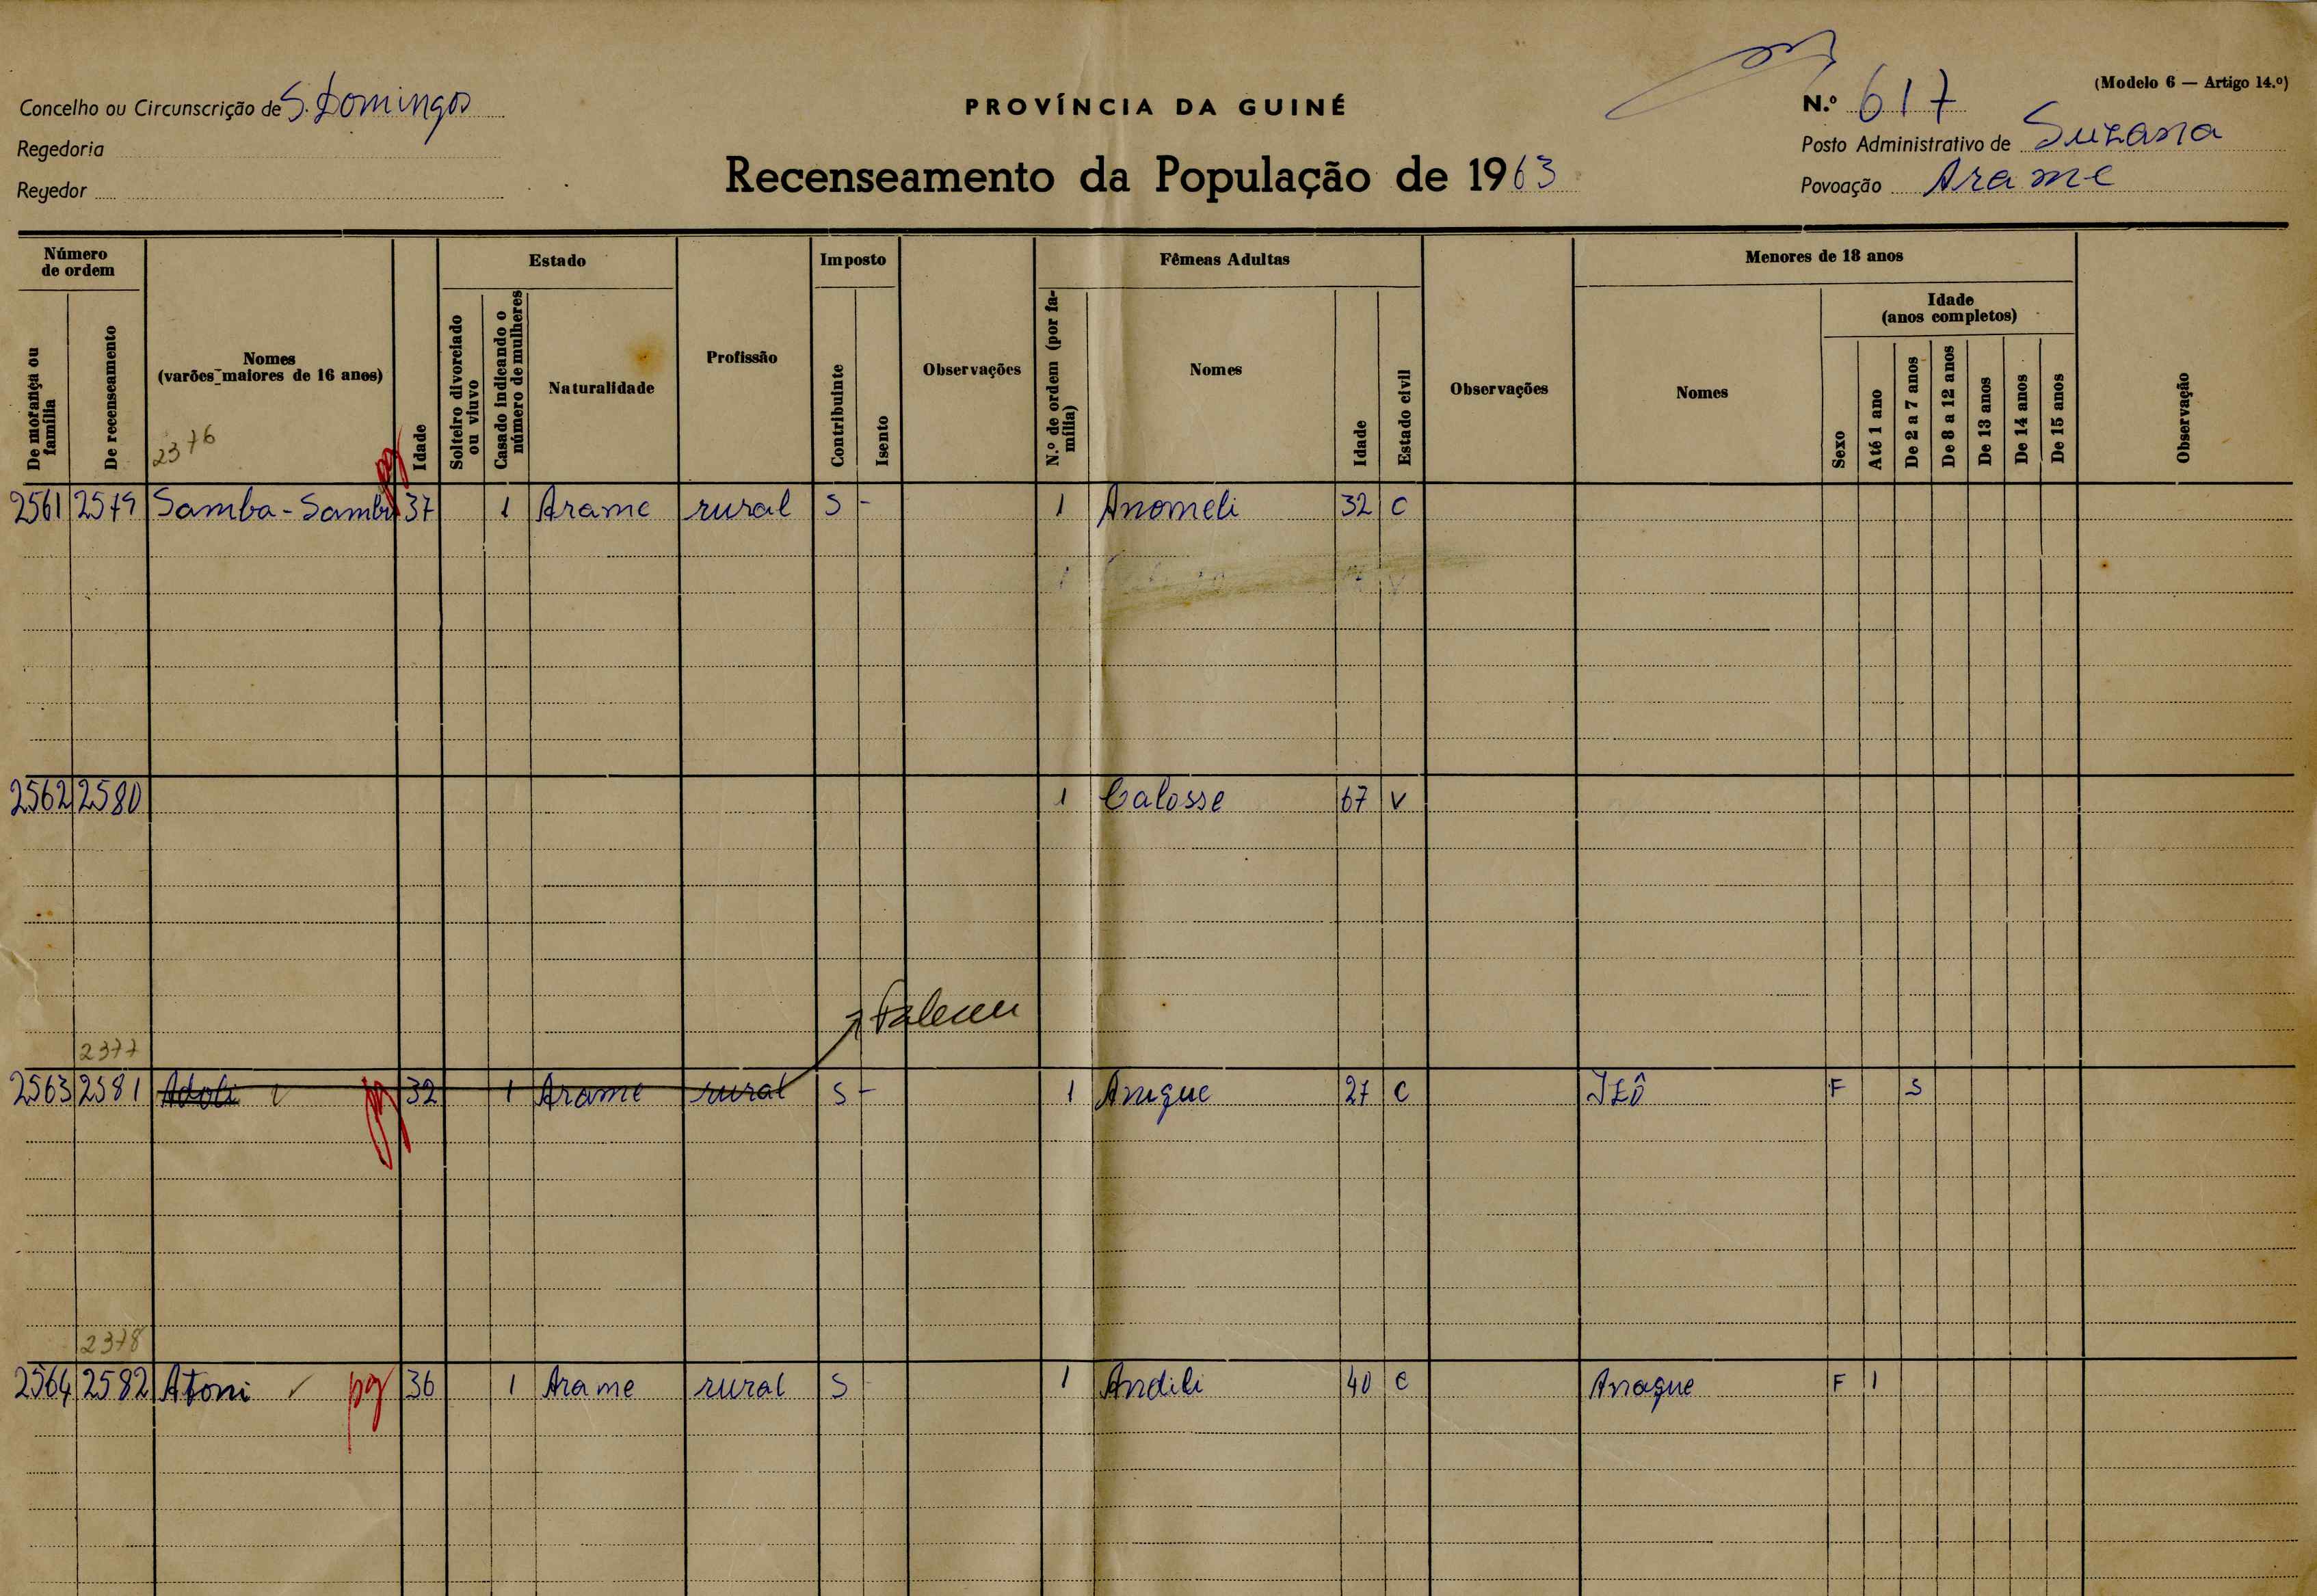 (Modelo 6 — Artigo 14.º)
Concelho ou Circunscrição de S. Domingos
PROVÍNCIA DA GUINÉ
N.º 617
Regedoria
Posto Administrativo de Suzana
Regedor
Recenseamento da População de 1963
Povoação Arame
Número de ordem
Estado
Imposto
Fêmeas Adultas
Menores de 18 anos
Idade (anos completos)
De morança ou família
De recenseamento
Nomes (varões maiores de 16 anos)
Idade
Solteiro divorciado ou viuvo
Casado indicando o número de mulheres
Naturalidade
Profissão
Contribuinte
Isento
Observações
N.º de ordem (por família)
Nomes
Idade
Estado civil
Observações
Nomes
Sexo
Até 1 ano
De 2 a 7 anos
De 8 a 12 anos
De 13 anos
De 14 anos
De 15 anos
Observação
2376
pg
2561 2579 Samba - Sambu 37 1 Arame rural S - 1 Anomeli 32 C
2562 2580 1 Calosse 67 V
Faleceu
2377
2563 2581 Adoli 32 1 Arame rural S - 1 Anique 27 C IZÔ F S
pg
2378
2564 2582 Atoni ✓ pg 36 1 Arame rural S - 1 Andili 40 C Anaque F 1